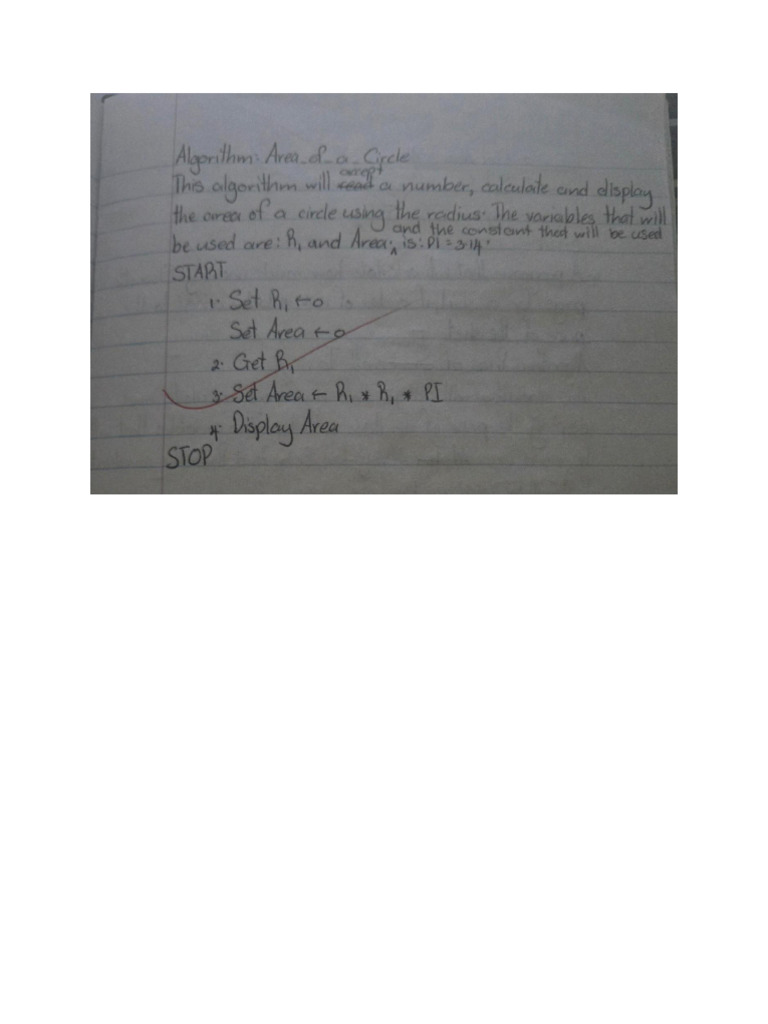 Algorithm: Area_of_a_Circle
This algorithm will accept a number, calculate and display
the area of a circle using the radius. The variables that will
be used are: R1 and Area, and the constant that will be used is: PI = 3.14.
START
1. Set R1 ← 0
Set Area ← 0
2. Get R1
3. Set Area ← R1 * R1 * PI
4. Display Area
STOP